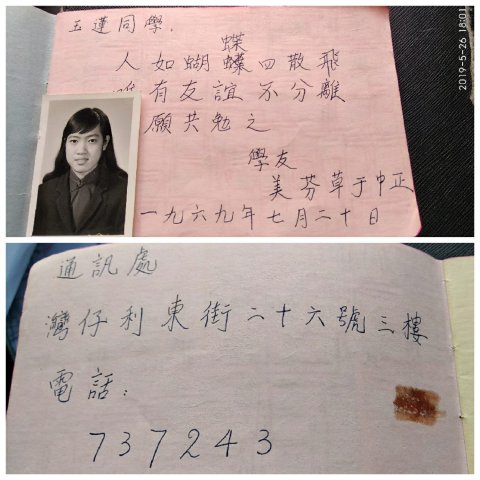 玉蓮同學.
蝶
人如蝴蝶四散飛
有友誼不分離
願共勉之
學友
美芬草于中正
一九六九年七月二十日
2019-5-26 18:01
通訊處
灣仔利東街二十六號三樓
電話:
737243